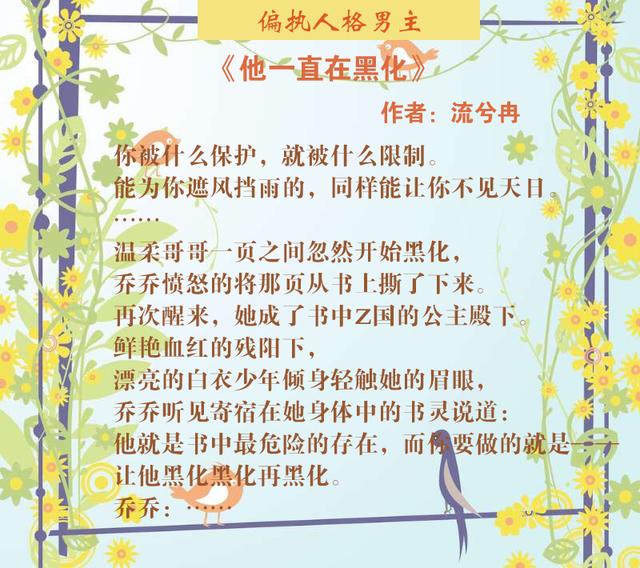 偏执人格男主
《他一直在黑化》
作者：流兮冉
你被什么保护，就被什么限制。
能为你遮风挡雨的，同样能让你不见天日。
……
温柔哥哥一页之间忽然开始黑化，
乔乔愤怒的将那页从书上撕了下来。
再次醒来，她成了书中Z国的公主殿下。
鲜艳血红的残阳下，
漂亮的白衣少年倾身轻触她的眉眼，
乔乔听见寄宿在她身体中的书灵说道：
他就是书中最危险的存在，而你要做的就是——
让他黑化黑化再黑化。
乔乔：……